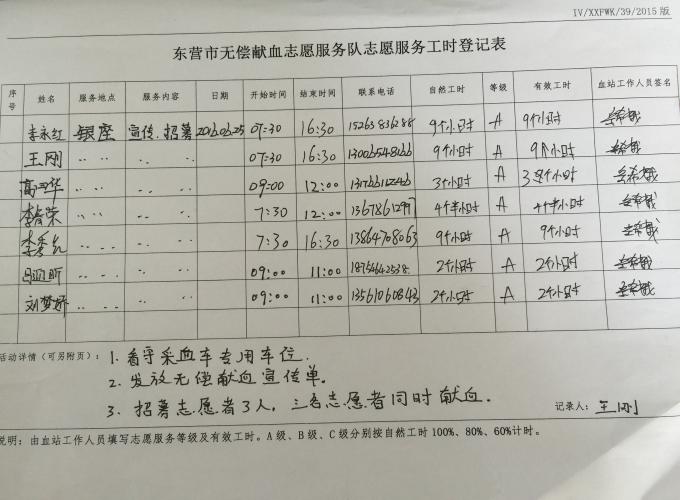 IV/XXFWK/39/2015版
东营市无偿献血志愿服务队志愿服务工时登记表
序号 姓名 服务地点 服务内容 日期 开始时间 结束时间 联系电话 自然工时 等级 有效工时 血站工作人员签名
李永红 银座 宣传.招募 2016.06.25 07:30 16:30 9个小时 A 9个小时
王刚 〃 〃 〃 〃 07:30 16:30 9个小时 A 9个小时
09:00 12:00 3个小时 A
7:30 12:00 13678612997 4个半小时 A 4个半小时
7:30 16:30 13864708063 9个小时 A 9个小时
09:00 11:00 2个小时 A 2个小时
刘梦娇 09:00 11:00 13561060843 2个小时 A 2个小时
活动详情（可另附页）： 1. 看守采血车专用车位.
2. 发放无偿献血宣传单.
3. 招募志愿者3人，三名志愿者同时献血.
记录人： 王刚
说明：由血站工作人员填写志愿服务等级及有效工时。A级、B级、C级分别按自然工时100%、80%、60%计时。